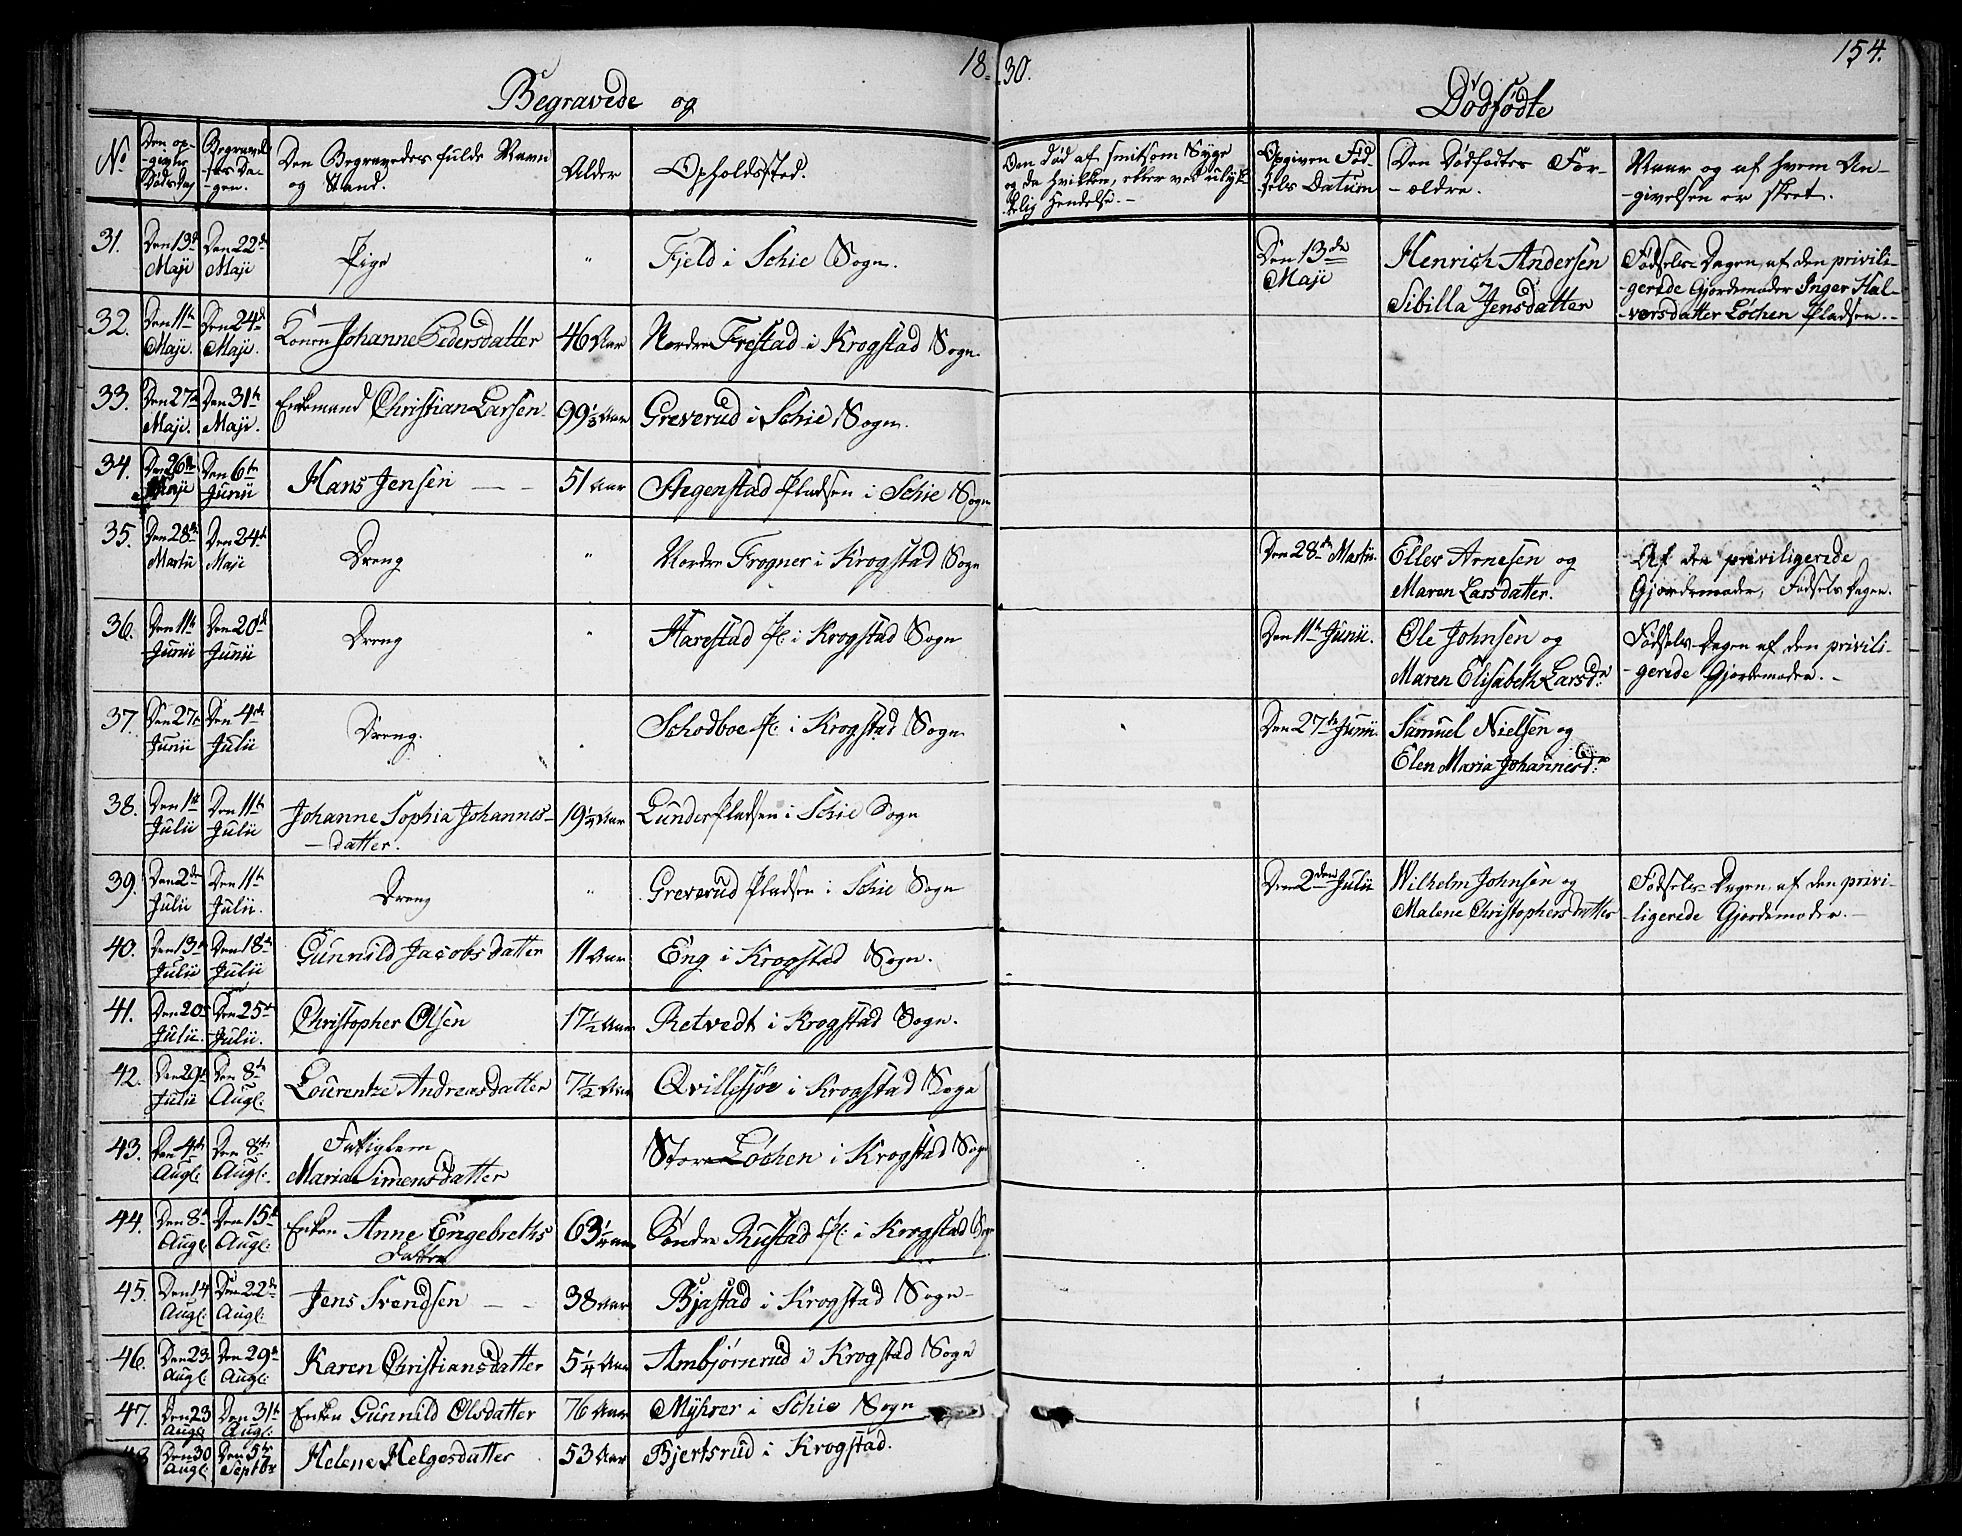 18 30. 154.
Begravede og Dødfødte
No | Den op-givne Dødsdag | Begravel-ses Da-gen. | Den Begravedes fulde Navn og Stand. | Alder | Opholdssted. | Om Død af smitsom Syge og da hvilken, eller ved ulyk-kelig Hendelse.- | Opgiven Fød-sels Datum | Den Dødfødtes For-ældre. | Naar og af hvem An-givelsen er skeet.
31. | Den 13de Maji | Den 22de Maji | Pige | " | Fjeld i Schie Sogn. | Den 13de Maji | Henrich Andersen Sibilla Jensdatter | Fødsels-Dagen, af den privili-gerede Gjordemoder Inger Hal-vorsdatter Løchen Pladsen.-
32. | Den 11te Maji. | Den 24de Maji. | Konen Johanne Pedersdatter | 46 Aar | Nordre Frestad i Krogstad Sogn.
33. | Den 27de Maji. | Den 31te Maji. | Enkemand Christian Larsen | 99 1/3 Aar | Greverud i Schie Sogn.
34. | Den 26de Maji | Den 6te Junii | Hans Jensen | 51 Aar | Stegenstad Pladsen i Schie Sogn
35. | Den 28de Martii | Den 24de Maji | Dreng | " | Nordre Frogner i Krogstad Sogn | Den 28de Martii. | Eller Arnesen og Maren Larsdatter. | Af den priviligerede Gjordemoder, Fødsels Dagen.
36. | Den 11te Junii | Den 20de Junii | Dreng | " | Harestad Pl: i Krogstad Sogn | Den 11te Junii. | Ole Johnsen og Maren Elisabeth Larsdr: | Fødsels-Dagen af den privili-gerede Gjordemoder.-
37. | Den 27de Junii | Den 4de Julii | Dreng. | Schodboe Pl: i Krogstad Sogn | Den 27de Junii. | Samuel Nielsen og Elen Maria Johannesdr:
38. | Den 1ste Julii | Den 11te Julii | Johanne Sophia Johannes-datter. | 19 1/4 Aar | Lunder Pladsen i Schie Sogn
39. | Den 2den Julii | Den 11te Julii. | Dreng | " | Greverud Pladsen i Schie Sogn | Den 2den Julii | Wilhelm Johnsen og Malene Christophersdatter | Fødsels-Dagen, af den privi-ligerede Gjordemoder.-
40. | Den 13de Julii | Den 18de Julii | Gunnild Jacobsdatter | 11 Aar | Eng i Krogstad Sogn.
41. | Den 20de Julii. | Den 25de Julii. | Christopher Olsen | 17 1/2 Aar | Retvedt i Krogstad Sogn.
42. | Den 29de Julii | Den 8de Augl: | Lourentze Andreasdatter | 7 1/2 Aar | Qvillesjøe i Krogstad Sogn
43. | Den 4de Augl: | Den 8de Augl: | Fattiglem Maria Simensdatter | Store Løchen i Krogstad Sogn
44. | Den 8de Augl: | Den 15de Augl: | Enken Anne Engebreths Datter | 63 1/4 Aar | Søndre Rustad Pl: i Krogstad Sogn
45. | Den 14 Augl: | Den 22de Augl: | Jens Svendsen | 38 Aar | Bjastad i Krogstad Sogn-
46. | Den 23 Augl: | Den 29de Augl: | Karen Christiansdatter | 5 1/4 Aar | Ambjørnrud i Krogstad Sogn
47. | Den 23 Augl: | Den 31te Augl: | Enken Gunnild Olsdatter | 76 Aar | Myhrer i Schie Sogn
48 | Den 30 Augl: | Den 5te Septbr | Helene Helgesdatter | 53 Aar | Bjertsrud i Krogstad.